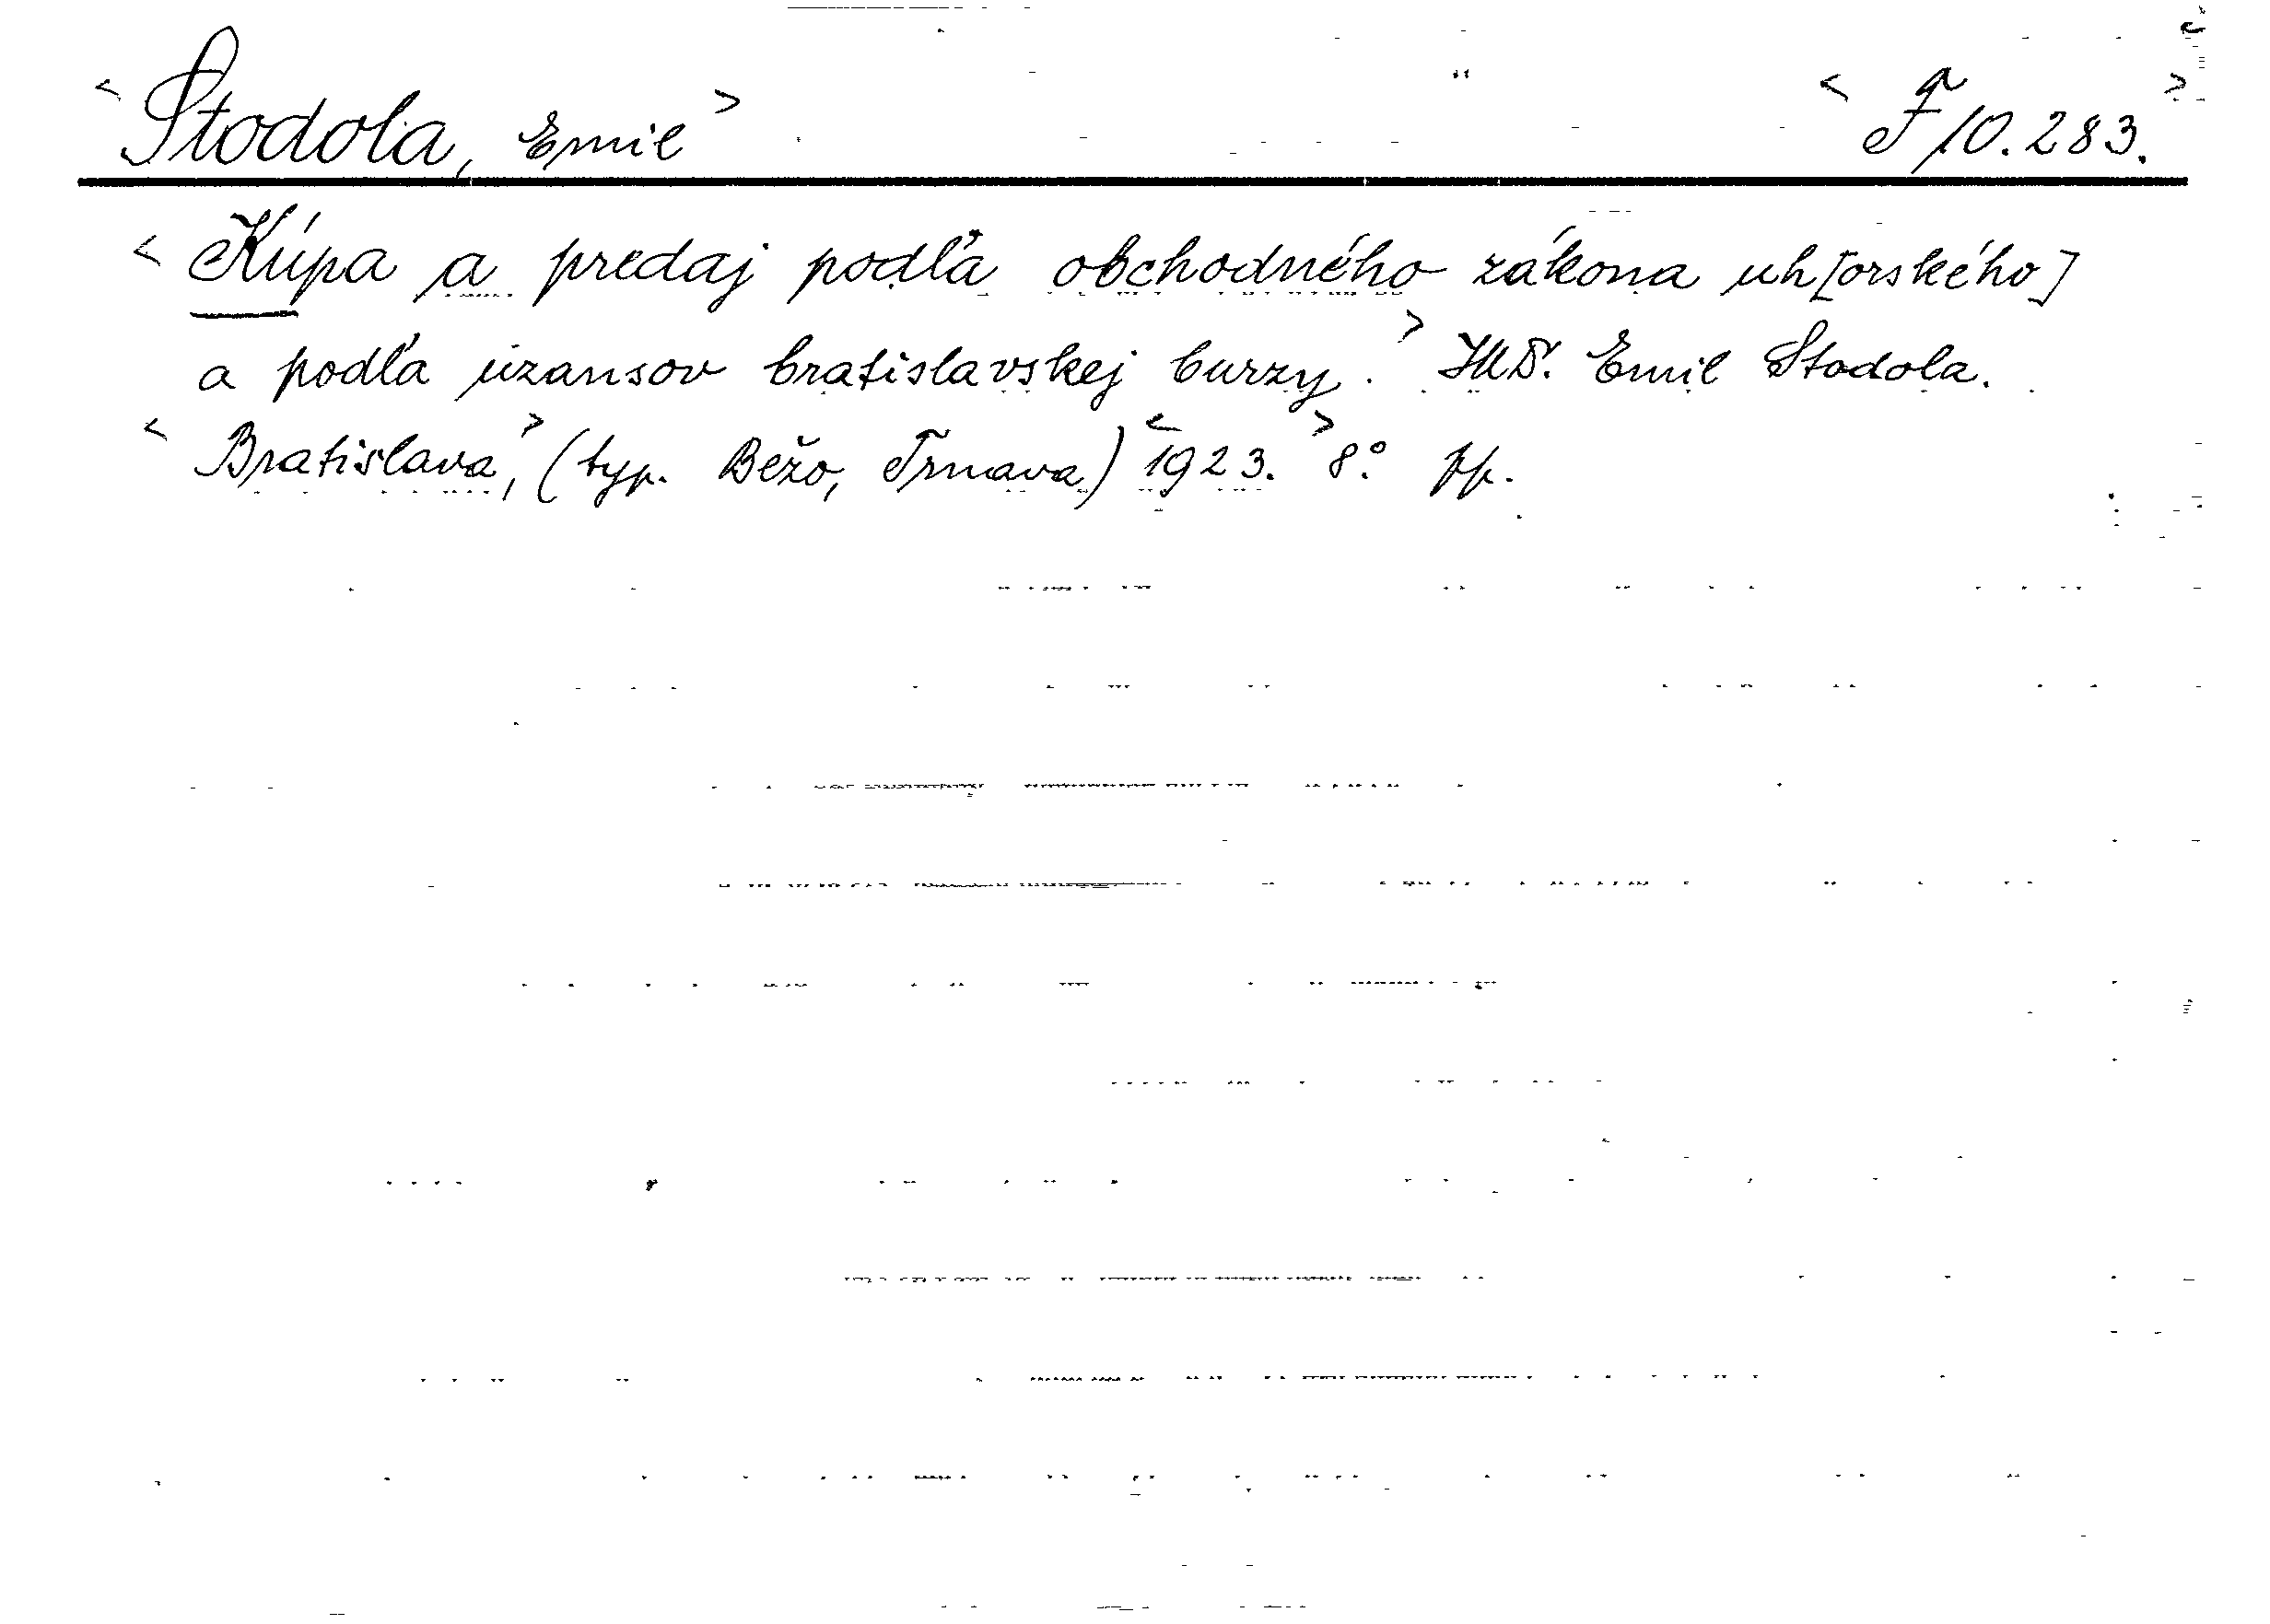 < Stodola, Emil > < F 10.283. >
< Kúpa a predaj podľa obchodného zákona uh[orského]
a podľa uzansov bratislavskej burzy. > JUD. Emil Stodola.
< Bratislava, > (typ. Bežo, Trnava) < 1923. > 8°. pp.